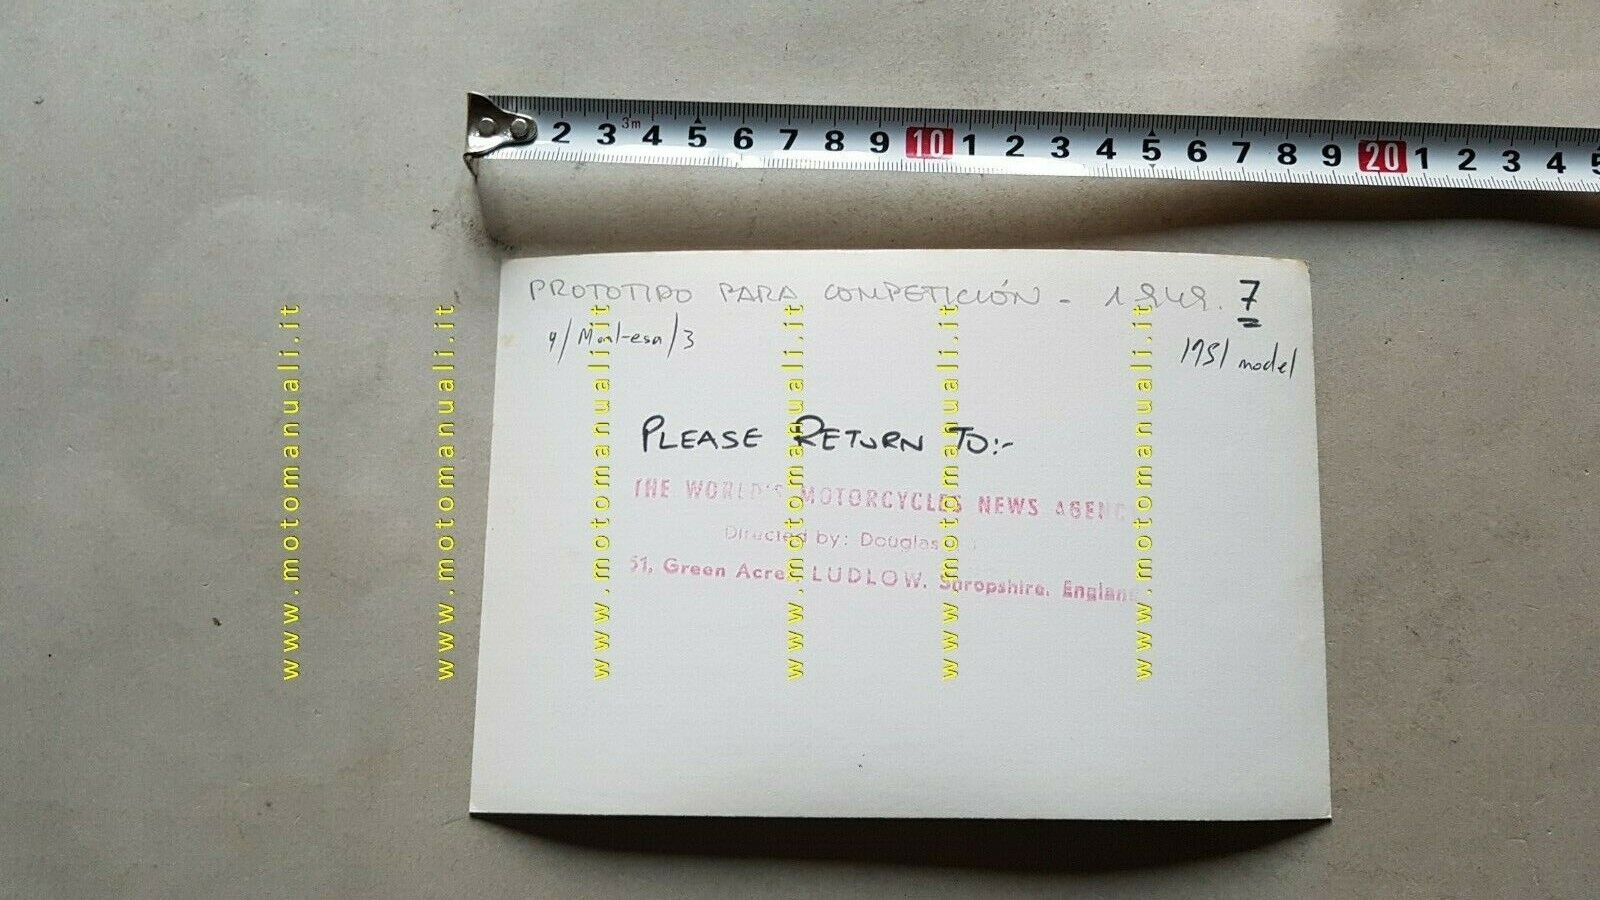 2 3 3m 4 5 6 7 8 9 10 1 2 3 4 5 6 7 8 9 20 1 2 3 4 5
PROTOTIPO PARA COMPETICIÓN - 1949. 7
4/Montesa/3
1951 model
PLEASE RETURN TO:-
THE WORLD'S MOTORCYCLES NEWS AGENC
Directed by: Douglas
51, Green Acres, LUDLOW, Shropshire, England
www.motomanuali.it
www.motomanuali.it
www.motomanuali.it
www.motomanuali.it
www.motomanuali.it
www.motomanuali.it